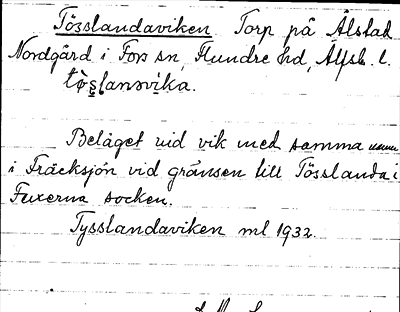 Tösslandaviken Torp på Ålstad
Nordgård i Fors sn, Flundre hd, Älfsb. l.
tø̀s̹lansvika.
Beläget vid vik med samma namn
i Träcksjön vid gränsen till Tösslanda i
Fuxerna socken.
Tysslandaviken ml 1932.